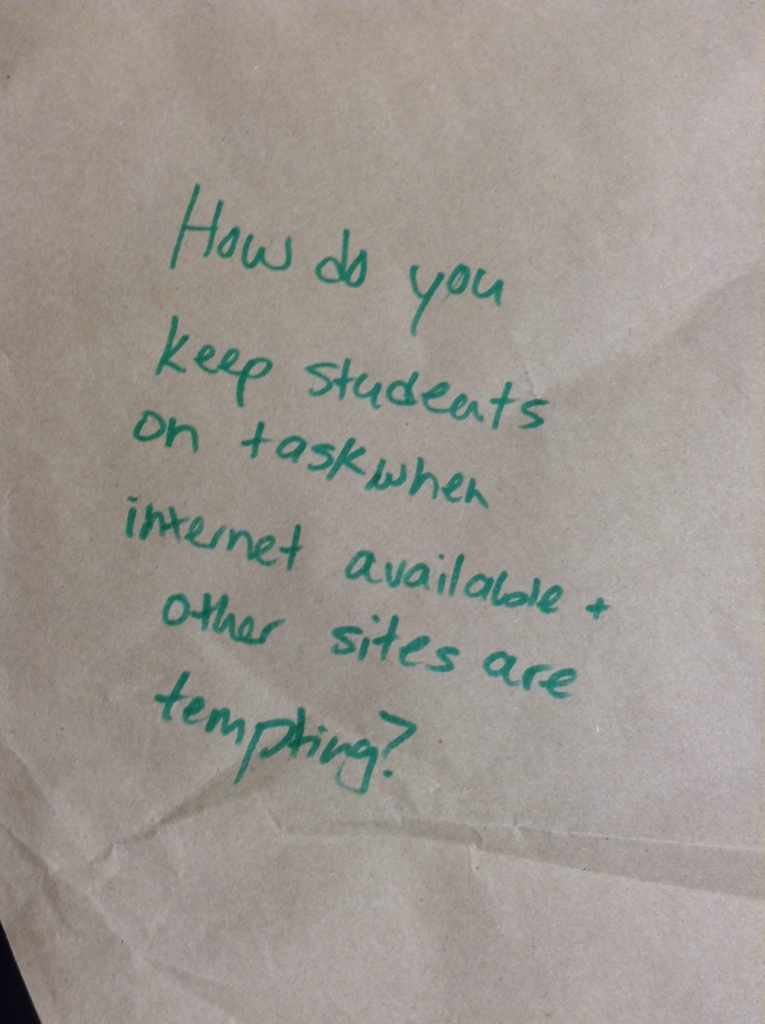 How do you
keep students
on task when
internet available +
other sites are
tempting?